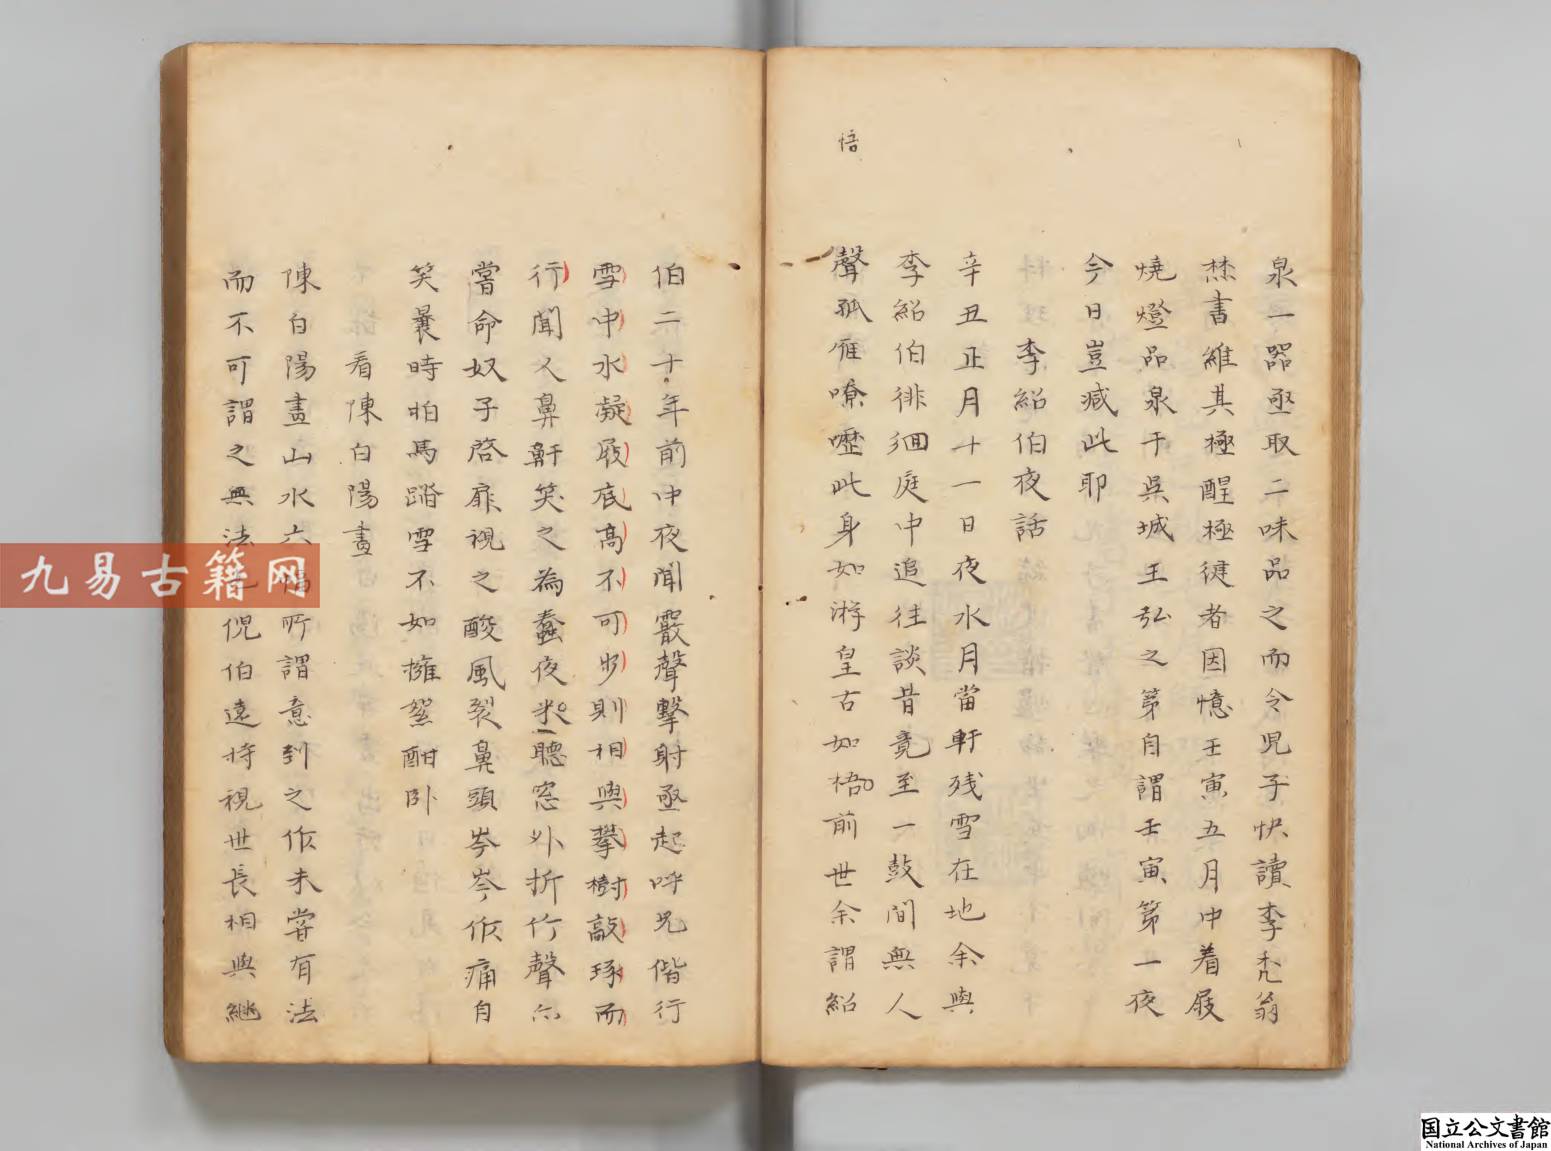 泉一器亟取二味品之而令児子快讀李禿翁
焚書維其極醒極健者因憶壬寅五月中着屐
燒燈品泉于吳城王弘之第自謂壬寅第一夜
今日豈減此耶
李紹伯夜話
辛丑正月十一日夜氷月當軒残雪在地余與
李紹伯徘徊庭中追往談昔竟至一鼓間無人
聲孤雁嘹嚦此身如游皇古如梧前世余謂紹
悟
伯二十年前中夜聞霰聲擊射亟起呼兄偕行
雪中氷凝屐底高不可步則相與攀樹敲琢而
行聞人鼻鼾笑之為蠢夜來聽窓外折竹聲
嘗命奴子啓扉視之酸風裂鼻頭岑岑作痛自
笑曩時怕馬踏雪不如擁爐酣卧
看陳白陽畫
陳白陽畫山水六幅所謂意到之作未嘗有法
而不可謂之無法倪伯遠持視世長相與繼
九易古籍网
国立公文書館
National Archives of Japan